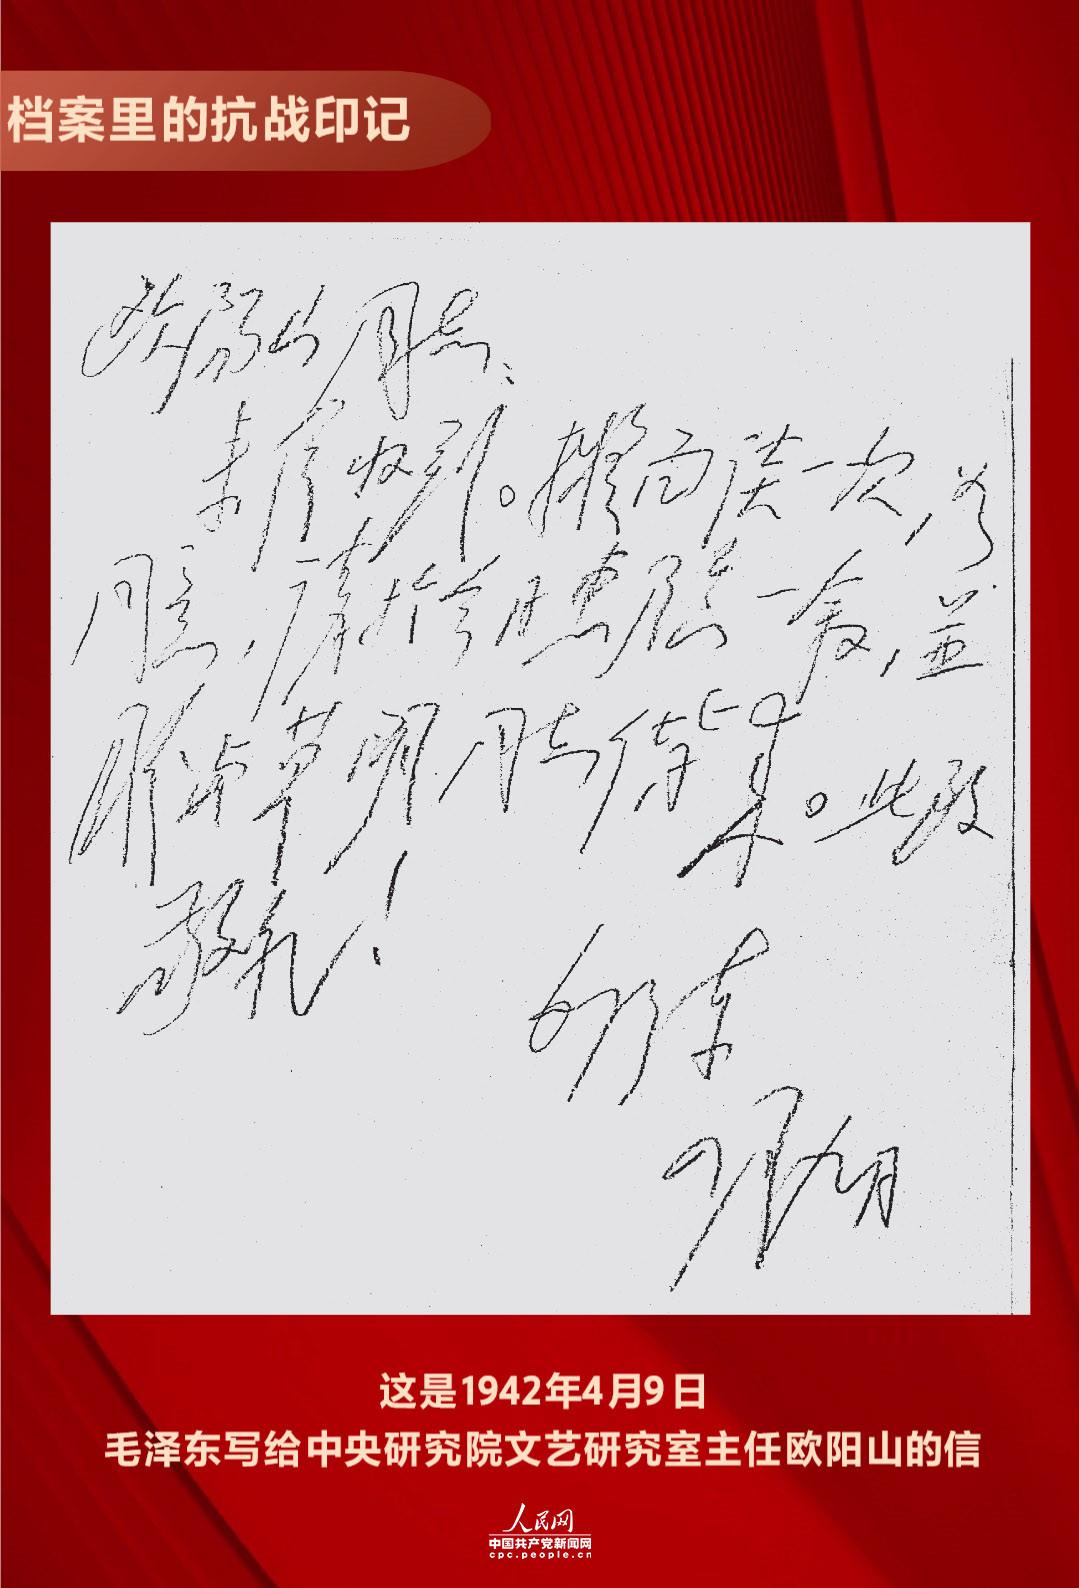 档案里的抗战印记
欧阳山同志：
来信收到。拟面谈一次，如
同意，请于今日惠临一叙，并
盼与草明同志偕来。此致
敬礼！
毛泽东
四月九日
这是1942年4月9日
毛泽东写给中央研究院文艺研究室主任欧阳山的信
人民网
中国共产党新闻网
cpc.people.cn